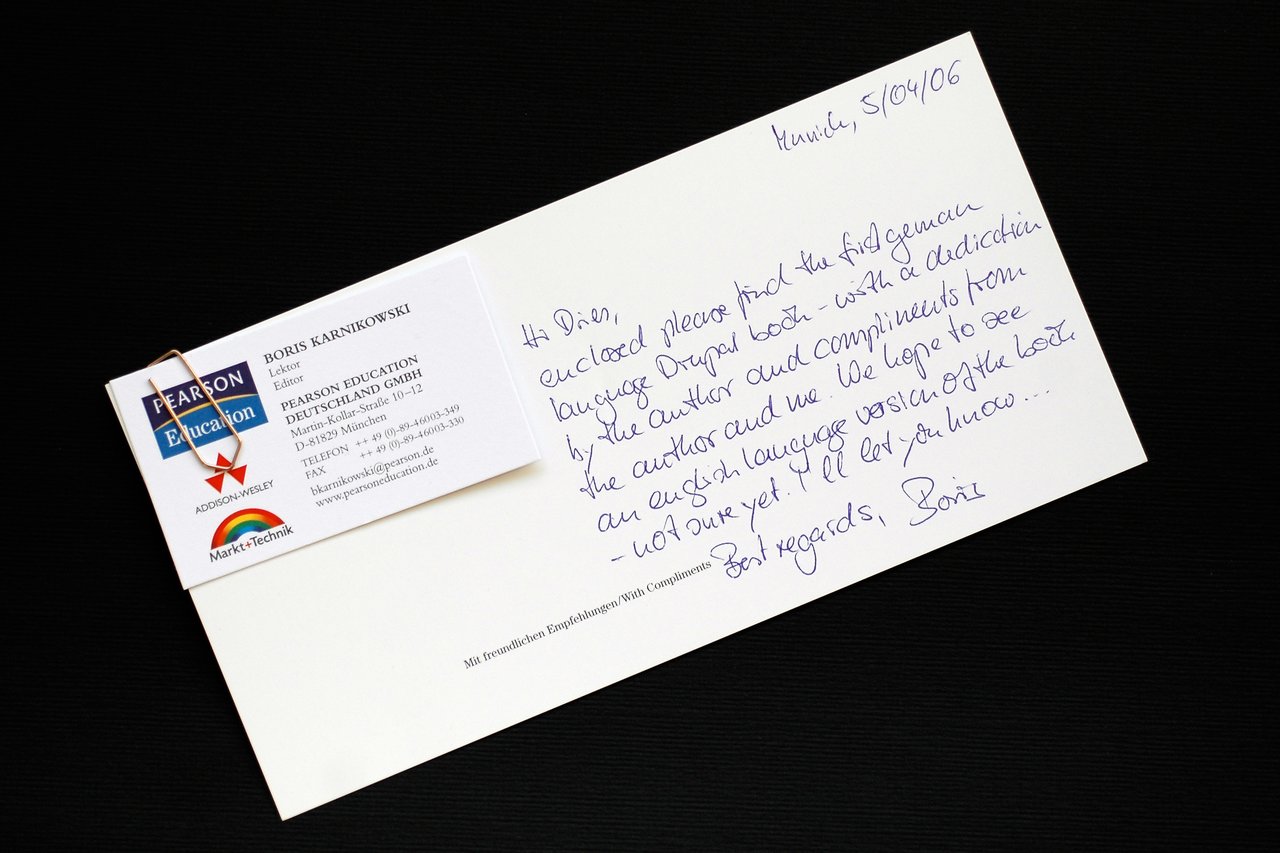 Munich, 5/04/06
Hi Dries,
enclosed please find the first german
language Drupal book - with a dedication
by the author and compliments from
the author and me. We hope to see
an english language version of the book
- not sure yet. I'll let you know...
Best regards, Boris
Mit freundlichen Empfehlungen/With Compliments
PEARSON
Education
ADDISON-WESLEY
Markt+Technik
BORIS KARNIKOWSKI
Lektor
Editor
PEARSON EDUCATION
DEUTSCHLAND GMBH
Martin-Kollar-Straße 10–12
D-81829 München
TELEFON ++ 49 (0)-89-46003-349
FAX ++ 49 (0)-89-46003-330
bkarnikowski@pearson.de
www.pearsoneducation.de